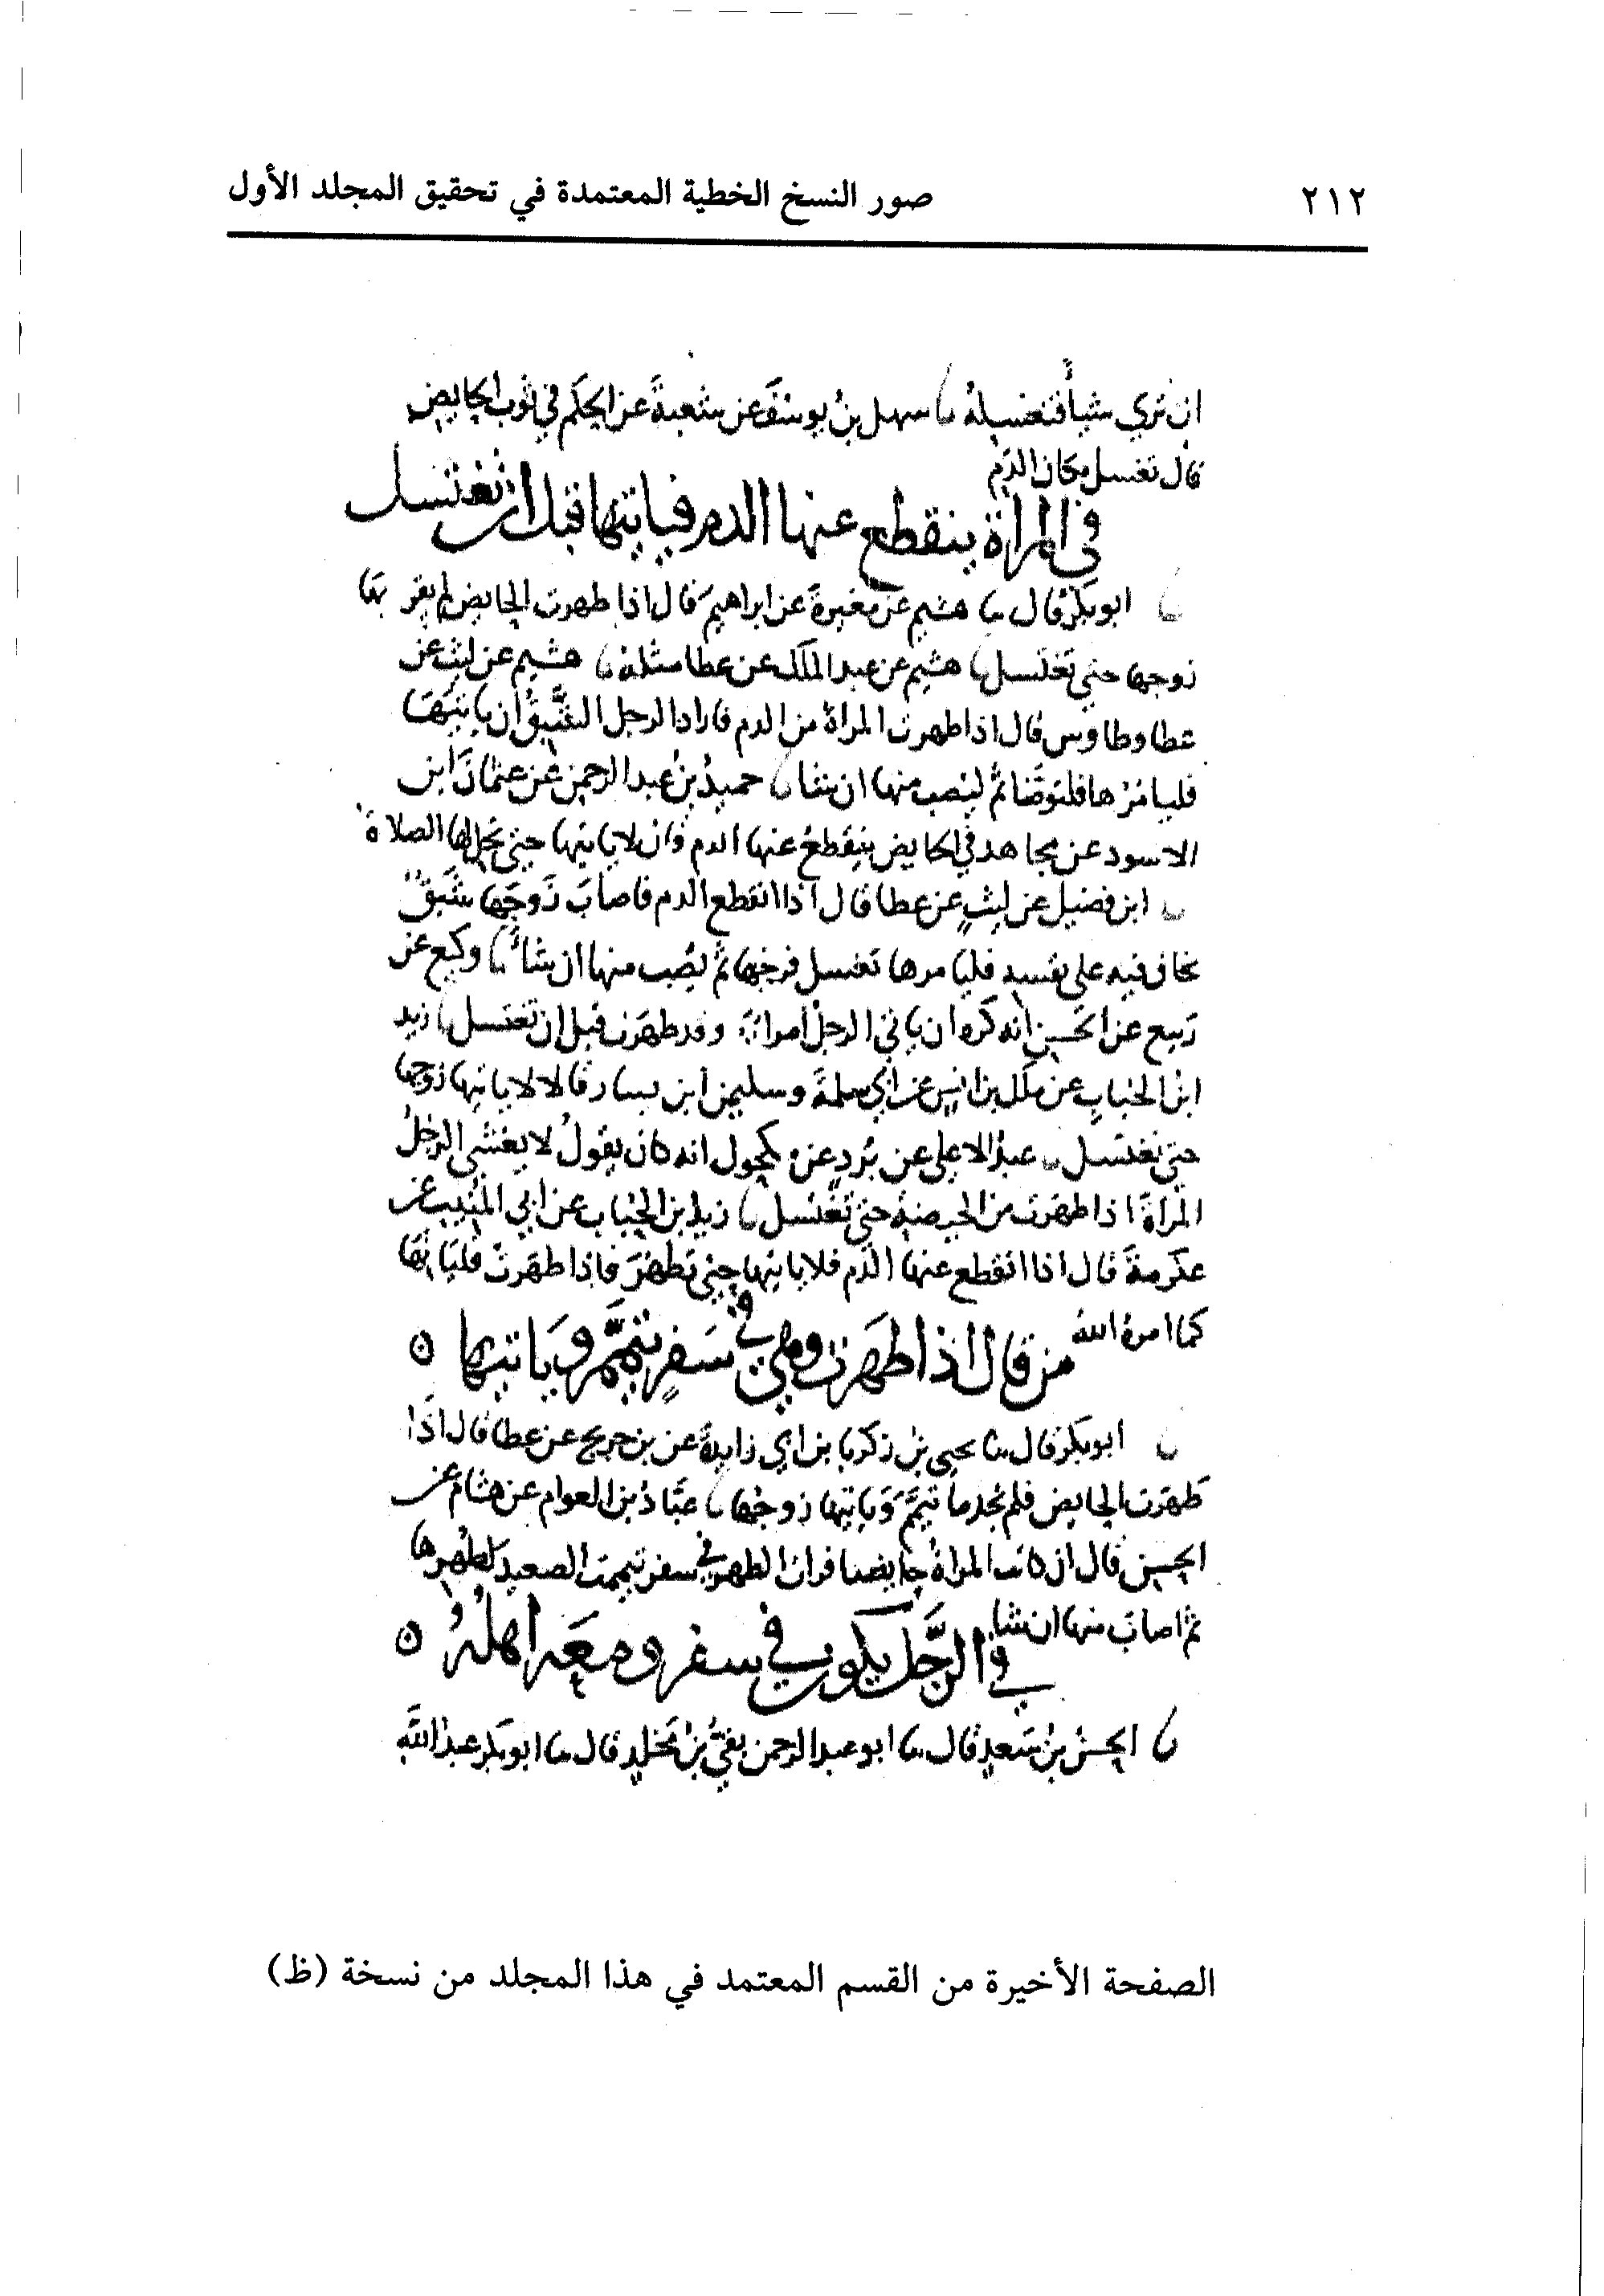 ٢١٢ صور النسخ الخطية المعتمدة في تحقيق المجلد الأول
ان تري شيأ فتغسله نا سهل بن يوسف عن شعبة عن الحكم في ثوب الحايض
قال تغسل مكان الدم
في المرأة ينقطع عنها الدم فياتيها قبل ان تغتسل
نا ابو بكر قال نا هشيم عن مغيرة عن ابراهيم قال اذا طهرت الحايض لم يقربها
زوجها حتي تغتسل نا هشيم عن عبد الملك عن عطا مثله نا هشيم عن ليث عن
عطا وطاوس قال اذا طهرت المراة من الدم فاراد الرجل الشبق ان ياتيها
فليامرها فلتوضا ثم ليصب منها ان شا نا حميد بن عبد الرحمن عن عثمان ابن
الاسود عن مجاهد في الحايض ينقطع عنها الدم قال لا ياتيها حتي تحل لها الصلاة
نا ابن فضيل عن ليث عن عطا قال اذا انقطع الدم فاصاب زوجها شبق
يخاف فيه على نفسه فليامرها تغسل فرجها ثم يصب منها ان شا نا وكيع عن
ربيع عن الحسن انه كره ان ياتي الرجل امراته وقد طهرت قبل ان تغتسل نا زيد
ابن الحباب عن ملك بن انس عن ابي سلمة وسليمن ابن يسار قالا لا ياتيها زوجها
حتي تغتسل نا عبد الاعلي عن برد عن مكحول انه كان يقول لا يغشى الرجل
المراة اذا طهرت من الحيضة حتي تغتسل نا زيد بن الحباب عن ابي المنيب عن
عكرمة قال اذا انقطع عنها الدم فلا ياتيها حتي تطهر فاذا طهرت فلياتها
كما امره الله
من قال اذا طهرت وهي في سفر تيمم وياتيها ٥
نا ابو بكر قال نا يحيى بن زكريا بن ابي زايدة عن بن جريج عن عطا قال اذا
طهرت الحايض فلم تجد ما تيمم وياتيها زوجها نا عباد بن العوام عن هشام عن
الحسن قال ان كانت المراة حايضا فرات الطهر في سفر تيممت الصعيد لطهرها
ثم اصاب منها ان شا
في الرجل يكون في سفر ومعه اهله ٥
نا الحسن بن سعد قال نا ابو عبد الرحمن بقي بن مخلد قال نا ابو بكر عبد الله
الصفحة الأخيرة من القسم المعتمد في هذا المجلد من نسخة (ظ)